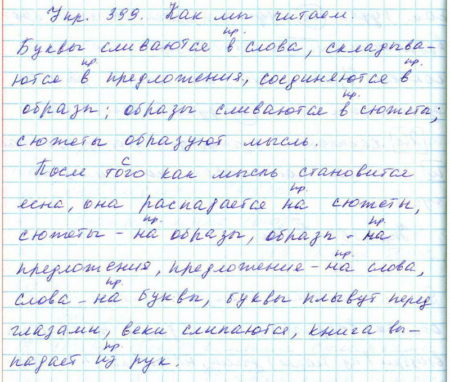 Упр. 399. Как мы читаем.
пр.
Буквы сливаются в слова, складыва-
пр. пр.
ются в предложения, соединяются в
пр.
образы; образы сливаются в сюжеты;
сюжеты образуют мысль.
с
После того как мысль становится
пр.
ясна, она распадается на сюжеты,
пр. пр.
сюжеты - на образы, образы - на
пр.
предложения, предложение - на слова,
пр.
слова - на буквы, буквы плывут перед
глазами, веки слипаются, книга вы-
пр.
падает из рук.